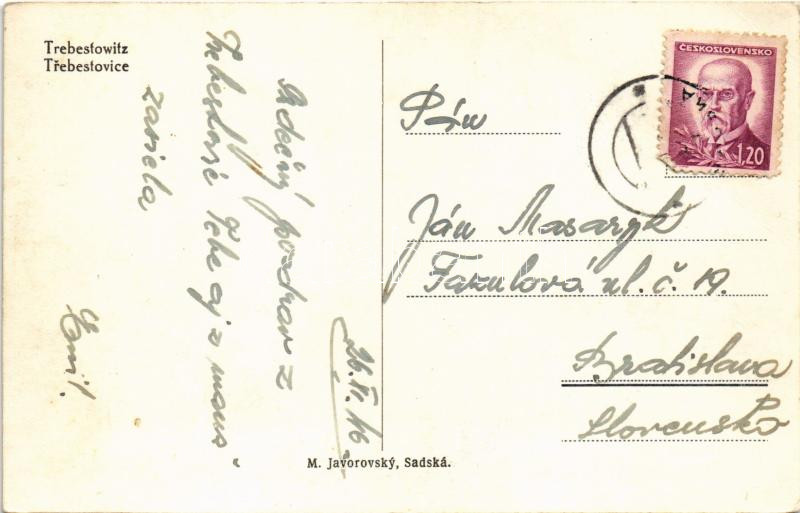 Trebestowitz
Třebestovice
26. IV. 46
Srdečný pozdrav z
Třebestovíc Tebe aj
zasiela
Emil.
M. Javorovský, Sadská.
ČESKOSLOVENSKO
1,20
Pán
Ján Masaryk
Fazulová ul. č. 19.
Bratislava
Slovensko